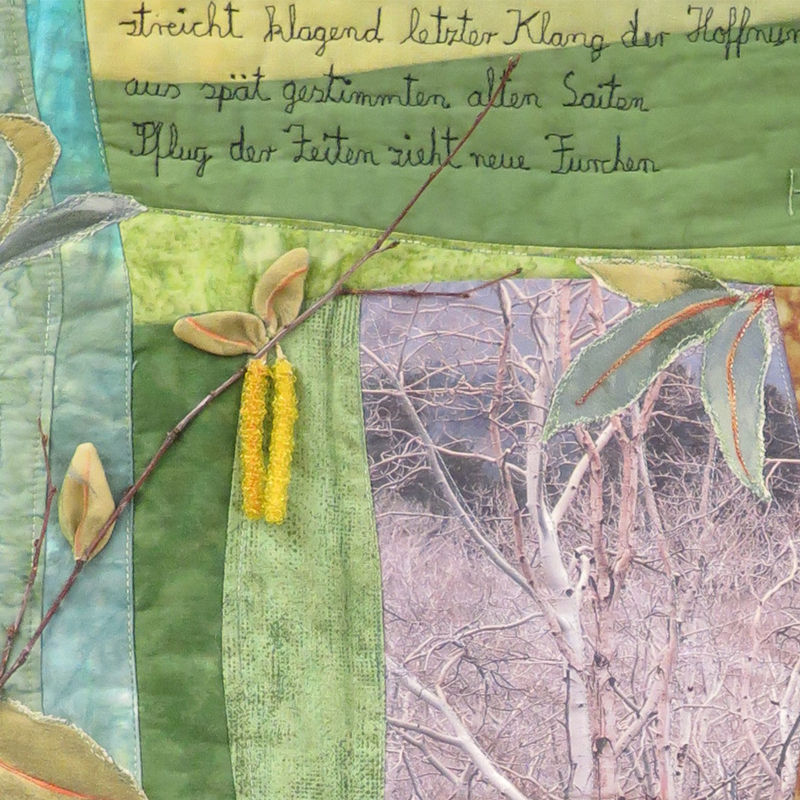 streicht klagend letzter Klang der Hoffnun
aus spät gestimmten alten Saiten
Pflug der Zeiten zieht neue Furchen
H